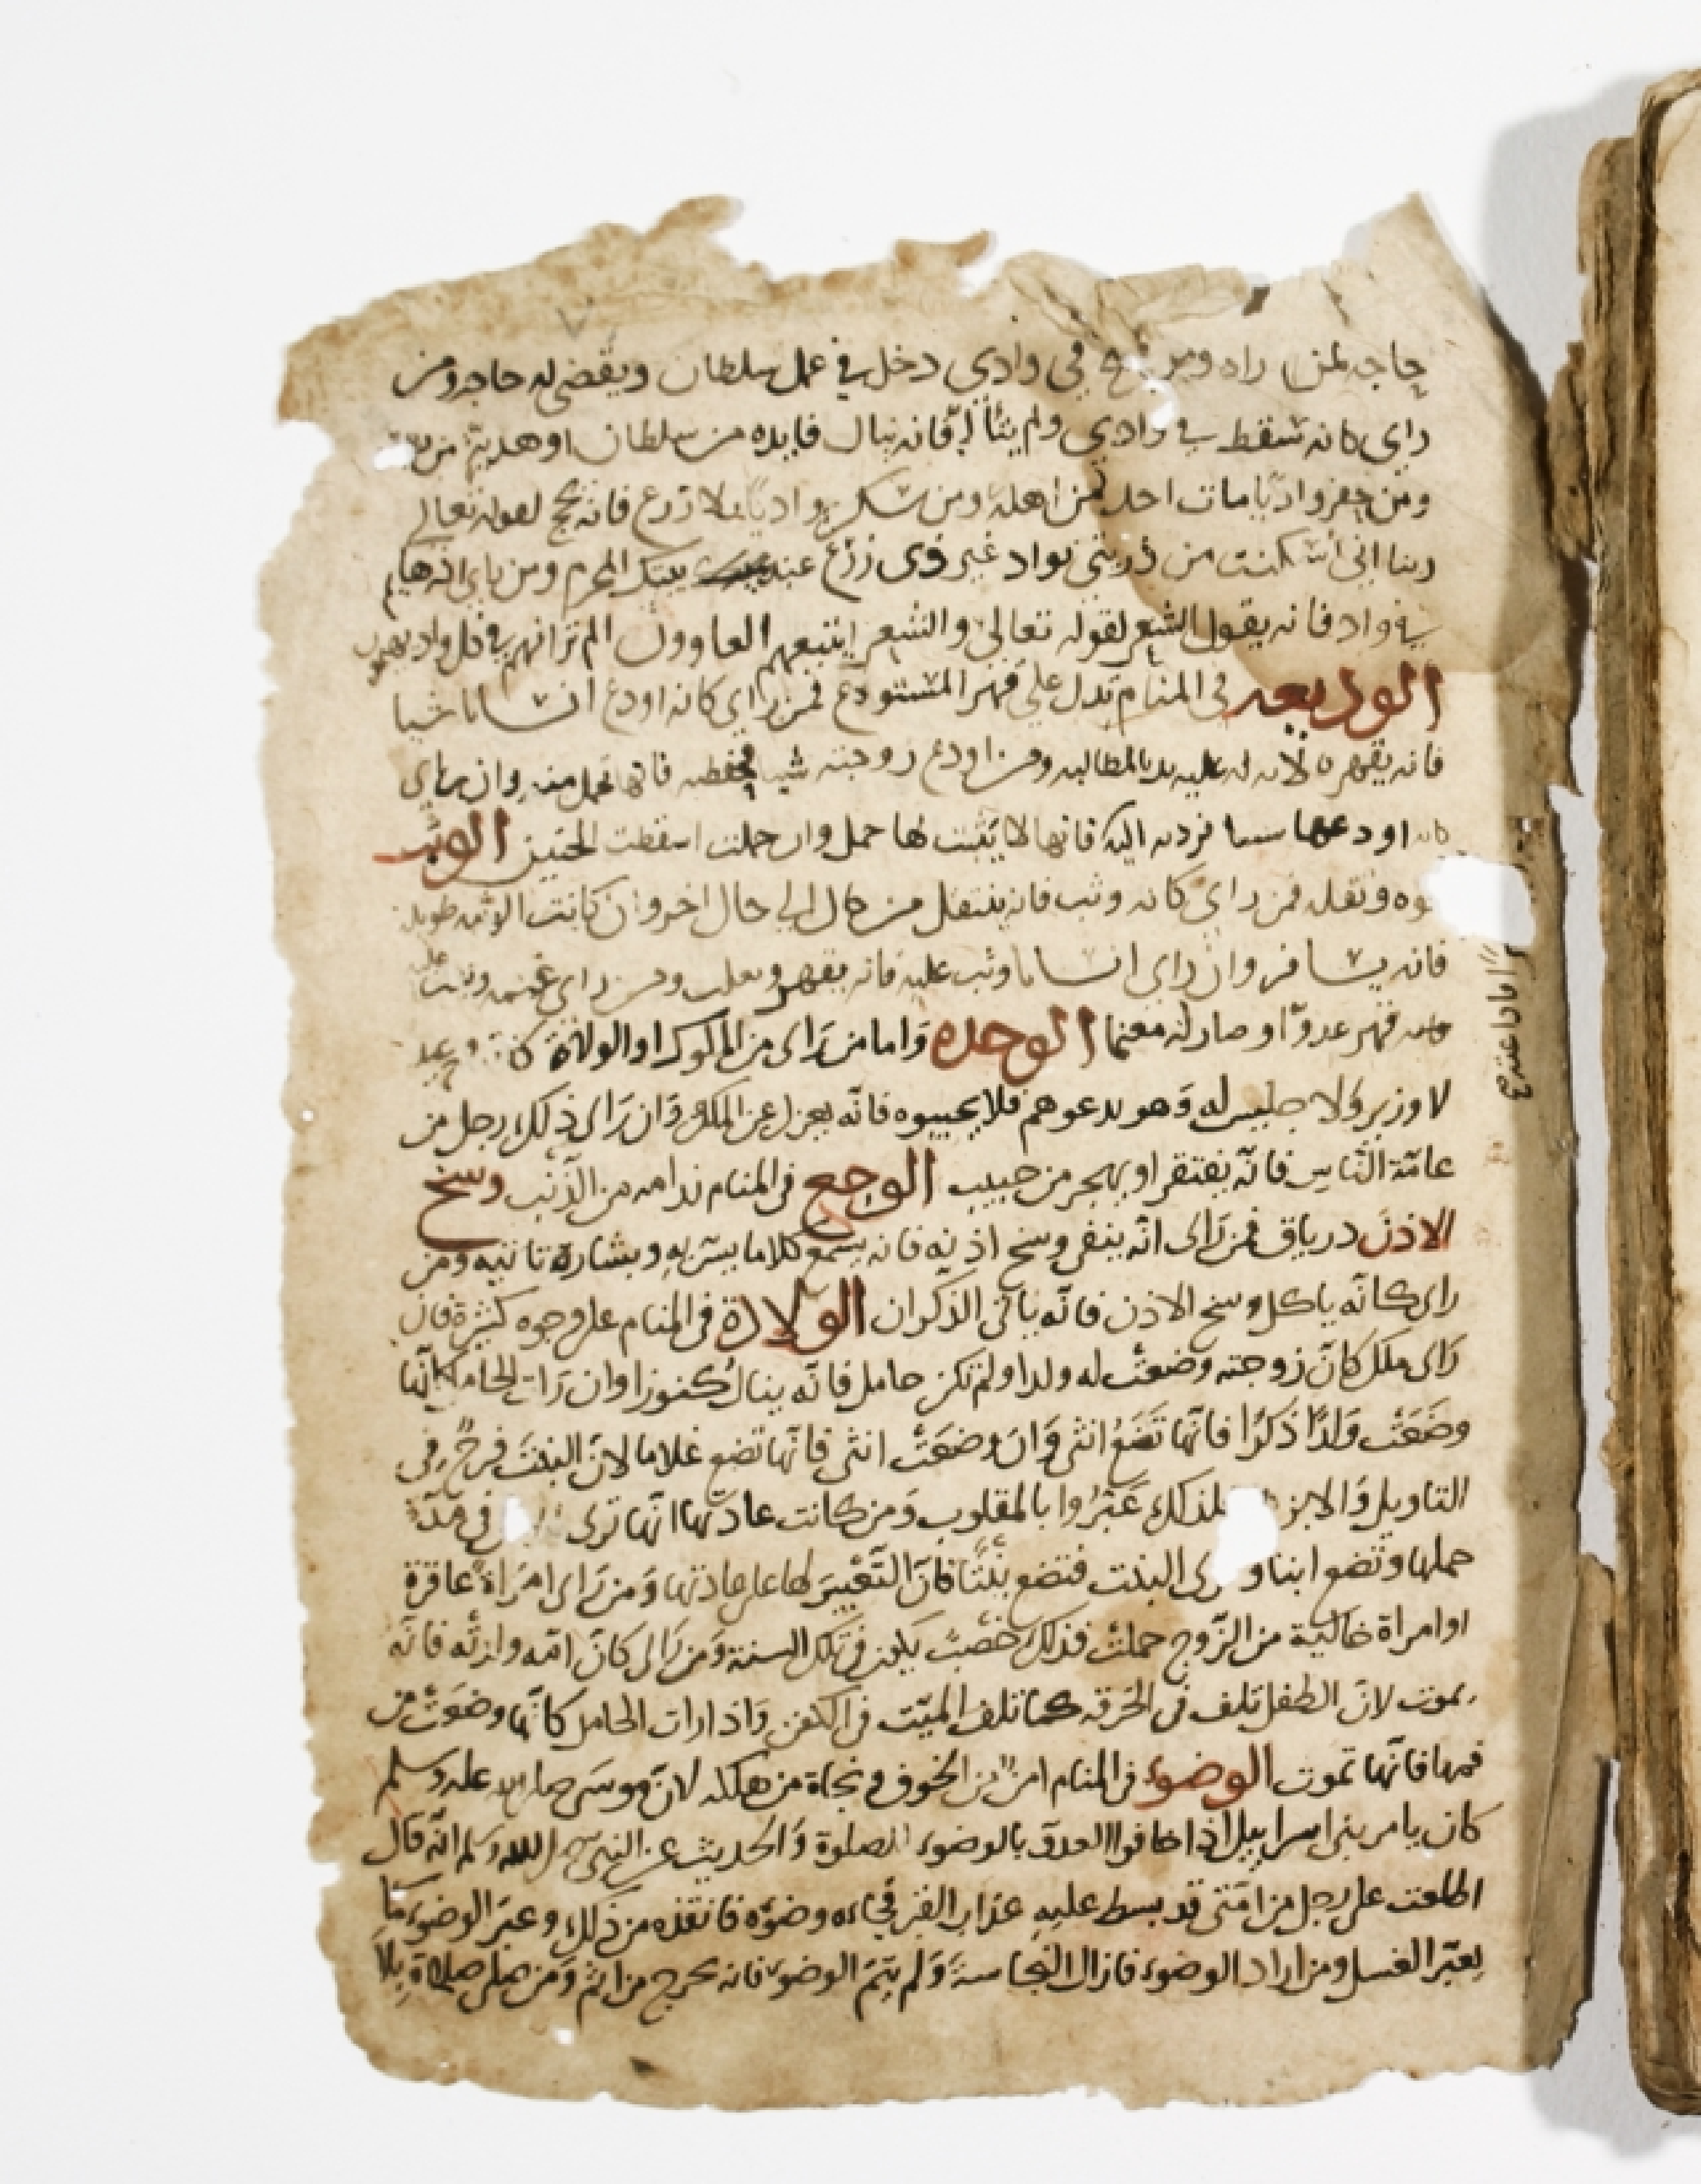 حاجه لمن راه ومن في وادي دخل في عمل سلطان ويقضي له حاجه ومن
راي كانه سقط في وادي ولم يتألم فانه ينال فايده من سلطان او هدية من
ومن حفر واديا مات احد من اهله ومن سكن واديا بلا زرع فانه يحج لقوله تعالي
ربنا اني أسكنت من ذريتي بواد غير ذي زرع عند بيتك المحرم ومن راي انه هايم
في واد فانه يقول الشعر لقوله تعالي والشعرا يتبعهم الغاوون الم تر انهم في كل واد يهيمون
الوديعه في المنام تدل علي قهر المستودع فمن راي كانه اودع انسانا شيا
فانه يقهره لانه له عليه يد بالمطالبه ومن اودع زوجته شيا فحفظته فانها تحمل منه وان راي
كانه اودعها شيا فردته اليه فانها لا يثبت لها حمل وان حملت اسقطت الجنين الوثب
قوه ونقله فمن راي كانه وثب فانه ينتقل من حال الي حال اخر وان كانت الوثبه طويله
فانه يسافر وان راي انسانا وثب عليه فانه يقهر ويغلب ومن راي وثبت عليه
فانه قهر عدوّا وصار له مغنما الوحده وَاما من رَاى من الملوك او الولاة كانه وحيد
لا وزير ولا جليس له وَهو يدعوهم فلا يجيبوه فانّه يعزل عن الملك وَان رَاى ذلك رجل من
عامّة النّاس فانّه يفتقر او يهجر من حبيب الوجع في المنام ندامه من الذّنب وسخ
الاذن درياق فمن رَاى انّه ينقي وسخ اذنيه فانه يسمع كلاما يسرّ به وبشارة تاتيه ومن
راى كانّه ياكل وسخ الاذن فانّه ياتي الذكران الولادة في المنام على وجوه كثيرة فان
رَاى ملك كانّ زوجته وضعت له ولدا ولم تكن حامل فانّه ينال كنوزا وان رَات الحامل كانّها
وضَعَت وَلدًا ذَكرًا فانّها تَضَعُ انثى وَان وضعَتْ انثى فانّها تضع غلاما لانّ البنتَ فرحٌ في
التاويل وَالابن فلذلك عَبّرُوا بالمقلوب وَمن كانت عادتها انّها ترى في مدّة
حملها وتضع ابنا وترى البنت فتضع بنتًا فانّ التّعبيرَ لها على عادتها وَمن رَاى امرَاة عاقرة
او امراة خالية من الزّوج حملت فذلك خصبٌ يكون في تلك السنة وَمن رَاى كانّ امّه وادتْه فانّه
يموت لانّ الطفل تلف في الخرقه كما تلف الميّت في الكفن وَاذا رات الحامل كانّها وضعَتْ من
فمها فانّها تموت الوضوء في المنام امنٌ من الخوف ونجاة من هلكه لانّ موسَى صلى الله عليه وسلم
كان يامر بني اسراييل اذا خافوا العدوّ بالوضوء للصلوة وَالحديث عن النبي صلى الله وسلم انّه قال
اطلعت على رجل من امّتي قد بسط عليه عذاب القبر فجاءه وضوّه فانقذه من ذلك وعبّر الوضوء كما
يعبّر الغسل ومن اراد الوضوء فازال النجاسةَ وَلم يتمّ الوضوء فانه يخرج من اثم وَمن صلى صلاة بلا